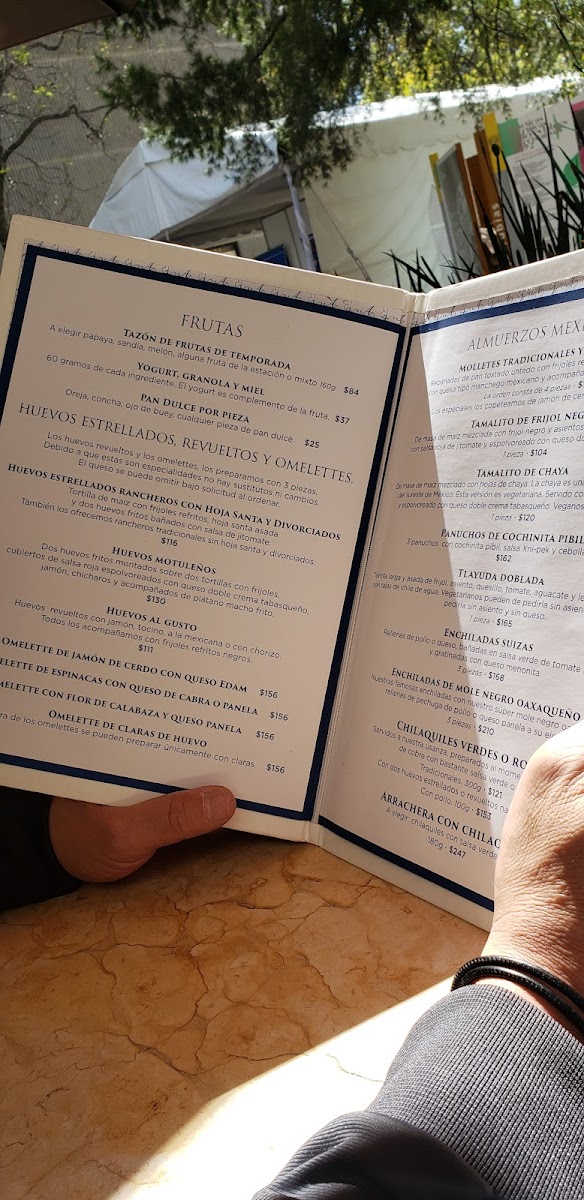 FRUTAS
TAZÓN DE FRUTAS DE TEMPORADA
A elegir papaya, sandía, melón, alguna fruta de la estación o mixto 160g $84
YOGURT, GRANOLA Y MIEL
60 gramos de cada ingrediente. El yogurt es complemento de la fruta. $37
PAN DULCE POR PIEZA
Oreja, concha, ojo de buey, cualquier pieza de pan dulce. $25
HUEVOS ESTRELLADOS, REVUELTOS Y OMELETTES.
Los huevos revueltos y los omelettes, los preparamos con 3 piezas.
Debido a que estas son especialidades no hay sustitutos ni cambios.
El queso se puede omitir bajo solicitud al ordenar.
HUEVOS ESTRELLADOS RANCHEROS CON HOJA SANTA Y DIVORCIADOS
Tortilla de maíz con frijoles refritos, hoja santa asada
y dos huevos fritos bañados con salsa de jitomate.
También los ofrecemos rancheros tradicionales sin hoja santa y divorciados.
$116
HUEVOS MOTULEÑOS
Dos huevos fritos montados sobre dos tortillas con frijoles,
cubiertos de salsa roja espolvoreados con queso doble crema tabasqueño
jamón, chicharos y acompañados de plátano macho frito.
$130
HUEVOS AL GUSTO
Huevos revueltos con jamón, tocino, a la mexicana o con chorizo.
Todos los acompañamos con frijoles refritos negros.
$111
OMELETTE DE JAMÓN DE CERDO CON QUESO EDAM $156
DE ESPINACAS CON QUESO DE CABRA O PANELA $156
CON FLOR DE CALABAZA Y QUESO PANELA $156
OMELETTE DE CLARAS DE HUEVO
de los omelettes se pueden preparar únicamente con claras. $156
ALMUERZOS
MOLLETES TRADICIONALES Y
Rebanadas de pan tostado untado con frijoles
con queso tipo manchego mexicano y
La orden consta de 4 piezas
Los especiales los copeteamos con jamón de
TAMALITO DE FRIJOL
De masa de maíz mezclada con frijol negro y asientos
con salsa roja de jitomate y espolvoreado con queso
1 pieza - $104
TAMALITO DE CHAYA
De masa de maíz mezclada con hojas de chaya. La chaya es una
del sureste de México. Esta versión es vegetariana. Servido
y espolvoreado con queso doble crema tabasqueño.
1 pieza - $120
PANUCHOS DE COCHINITA PIBIL
3 panuchos con cochinita pibil, salsa Xni-pek y
$162
TLAYUDA DOBLADA
Tortilla larga y asada de frijol, asiento, quesillo, tomate, aguacate y
con rajas de chile de agua. Vegetarianos pueden de pedirla sin
pedirla sin asiento y sin queso.
1 pieza - $165
ENCHILADAS SUIZAS
Rellenas de pollo o queso, bañadas en salsa verde de tomate
y gratinadas con queso menonita.
3 piezas - $168
ENCHILADAS DE MOLE NEGRO OAXAQUEÑO
Nuestras famosas enchiladas con nuestro súper mole negro
rellenas de pechuga de pollo o queso panela a su
3 piezas - $210
CHILAQUILES VERDES O
Servidos a nuestra usanza, preparados al
de cobre con bastante salsa verde o
Tradicionales. 300g - $121
Con dos huevos estrellados o revueltos
Con pollo. 100g - $153
ARRACHERA CON
A elegir: chilaquiles con salsa verde
180g - $247